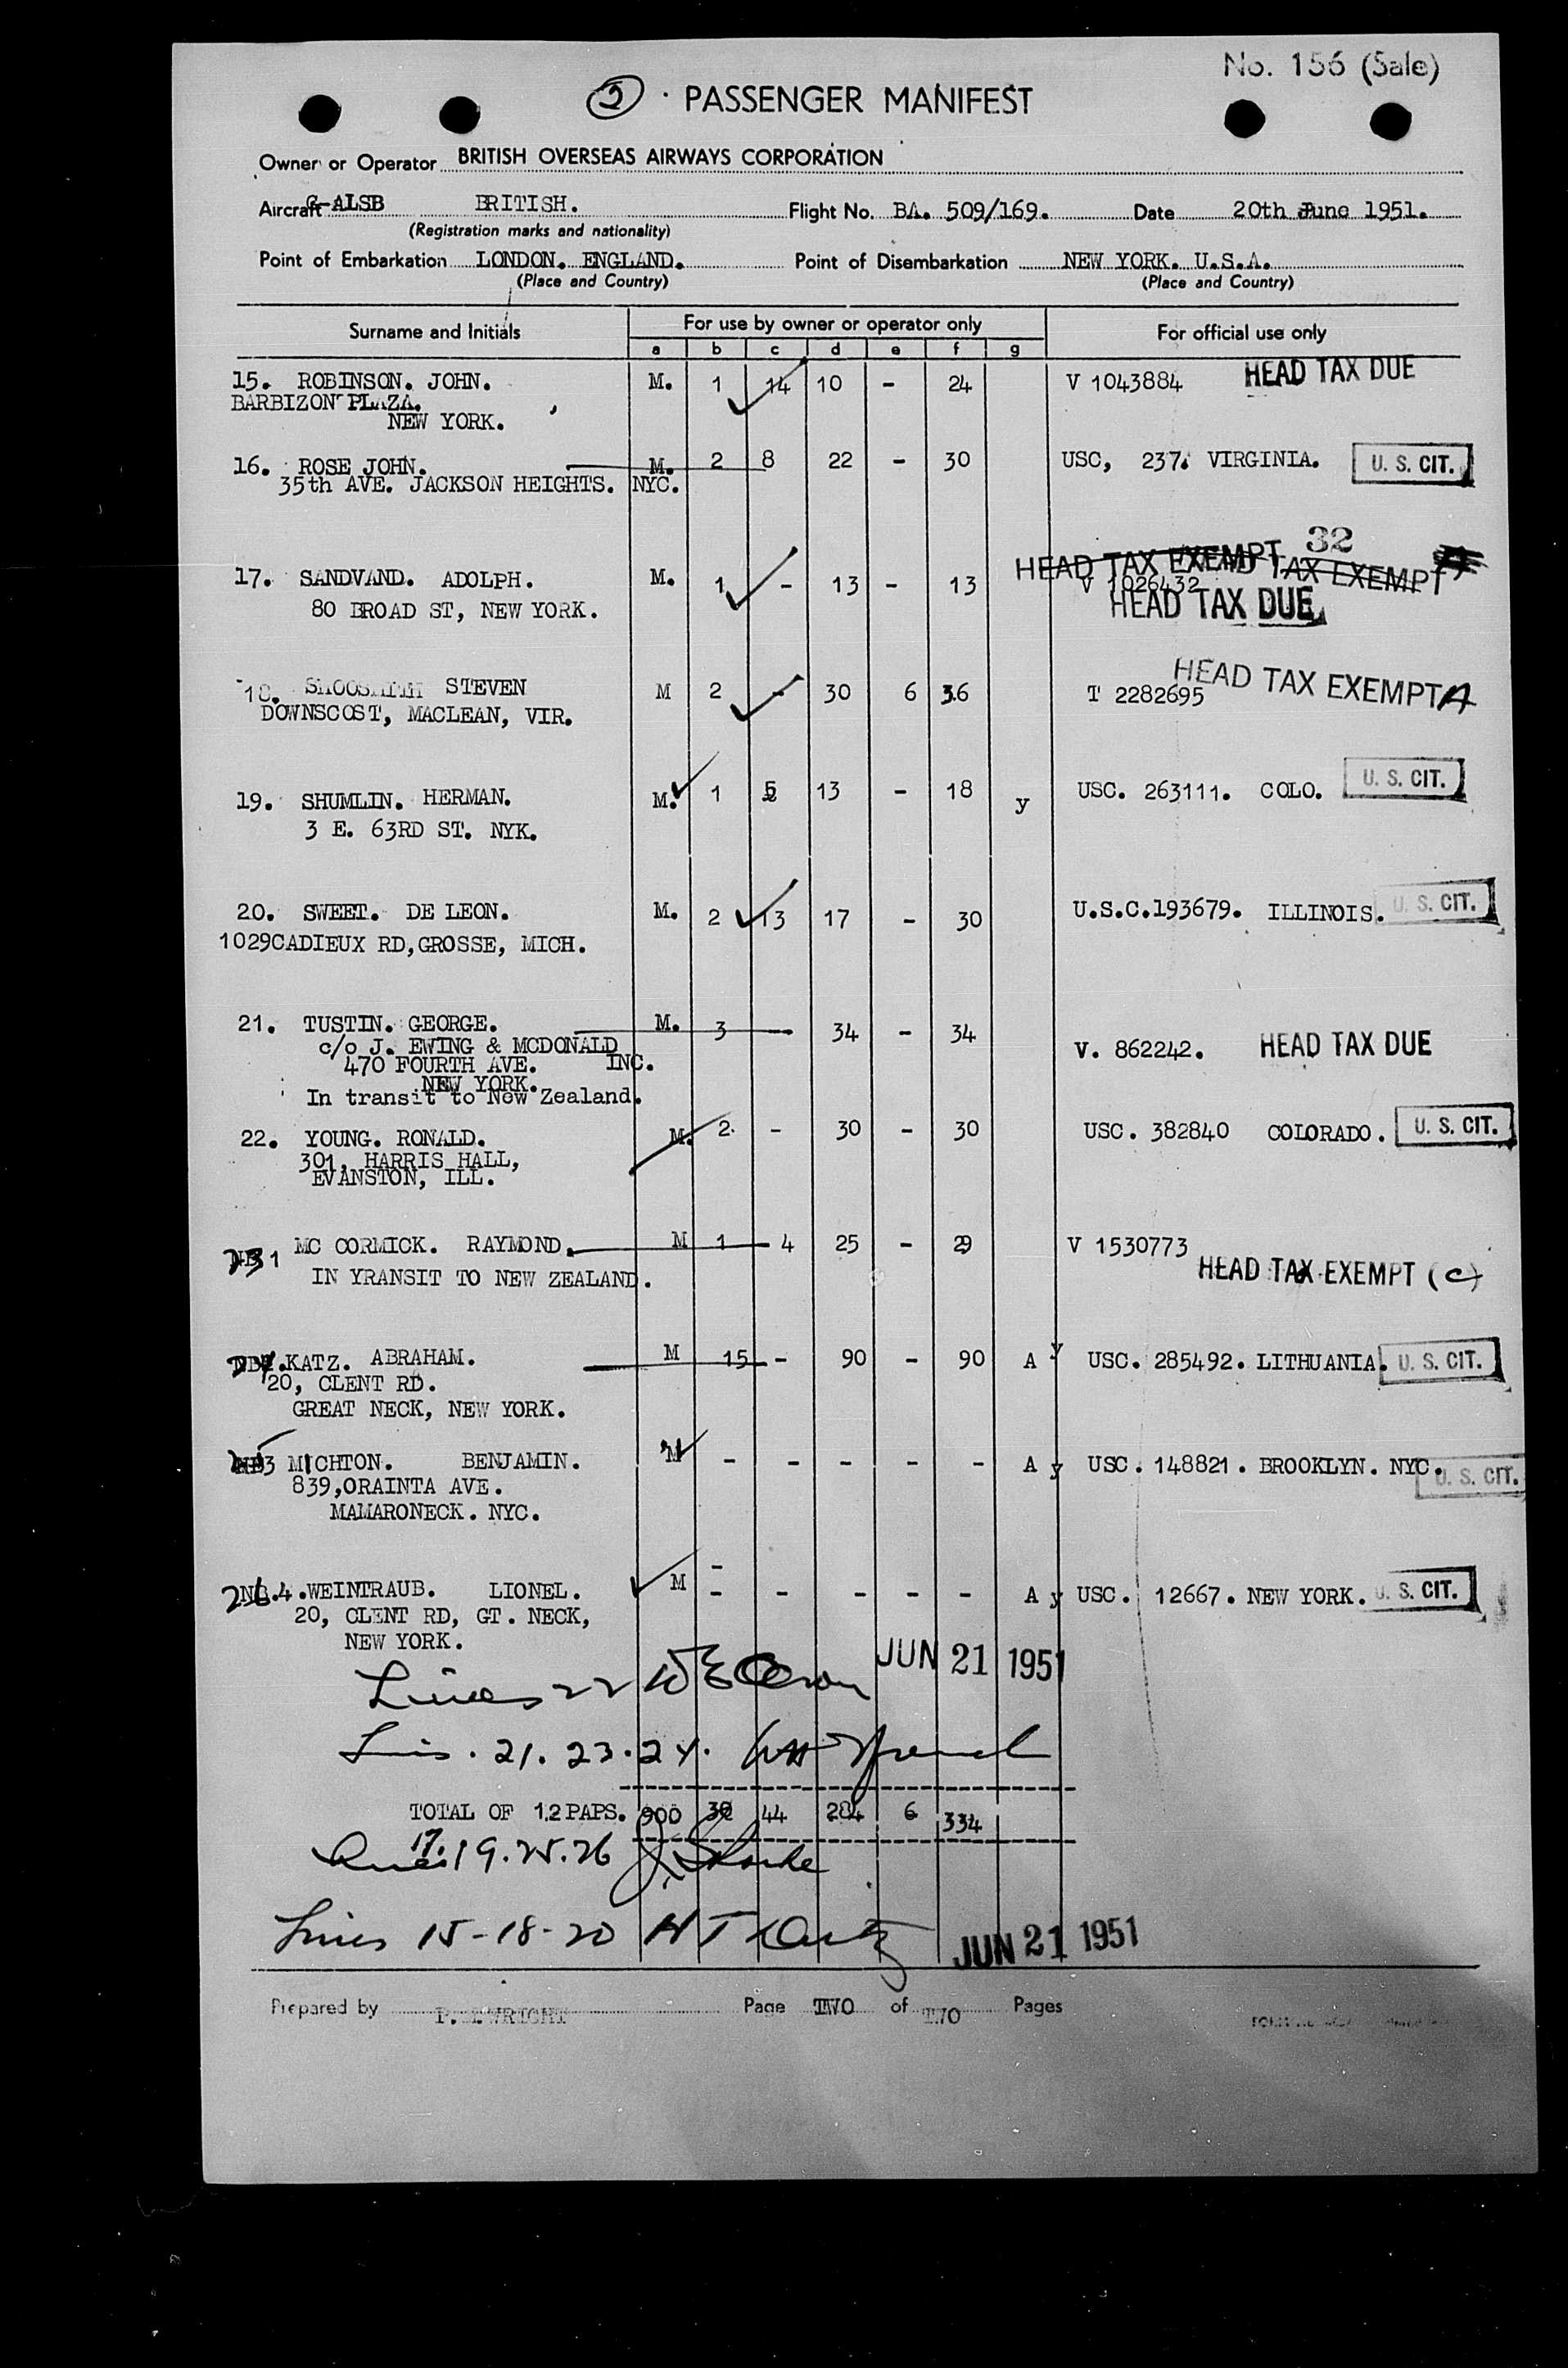 No. 156 (Sale)
2 . PASSENGER MANIFEST
Owner or Operator BRITISH OVERSEAS AIRWAYS CORPORATION
Aircraft G-ALSB BRITISH. Flight No. BA. 509/169. Date 20th June 1951.
(Registration marks and nationality)
Point of Embarkation LONDON. ENGLAND. Point of Disembarkation NEW YORK. U.S.A.
(Place and Country) (Place and Country)
Surname and Initials For use by owner or operator only For official use only
a b c d e f g
15. ROBINSON. JOHN. M. 1 14 10 - 24 V 1043884 HEAD TAX DUE
BARBIZON PLAZA.
NEW YORK.
16. ROSE JOHN. M. 2 8 22 - 30 USC, 237. VIRGINIA. U. S. CIT.
35th AVE. JACKSON HEIGHTS. NYC.
32
HEAD TAX EXEMPT HEAD TAX EXEMPT
17. SANDVAND. ADOLPH. M. 1 - 13 - 13 V 1026432
80 BROAD ST, NEW YORK. HEAD TAX DUE
18. STEVEN M 2 - 30 6 36 T 2282695 HEAD TAX EXEMPT A
DOWNSCOST, MACLEAN, VIR.
19. SHUMLIN. HERMAN. M. 1 5 13 - 18 y USC. 263111. COLO. U. S. CIT.
3 E. 63RD ST. NYK.
20. SWEET. DE LEON. M. 2 13 17 - 30 U.S.C.193679. ILLINOIS. U. S. CIT.
1029CADIEUX RD,GROSSE, MICH.
21. TUSTIN. GEORGE. M. 3 - 34 - 34 V. 862242. HEAD TAX DUE
c/o J. EWING & MCDONALD
470 FOURTH AVE. INC.
NEW YORK.
In transit to New Zealand.
22. YOUNG. RONALD. M. 2. - 30 - 30 USC. 382840 COLORADO. U. S. CIT.
301, HARRIS HALL,
EVANSTON, ILL.
23 1 MC CORMICK. RAYMOND. M 1 - 4 25 - 29 V 1530773
IN YRANSIT TO NEW ZEALAND. HEAD TAX EXEMPT (c)
24. KATZ. ABRAHAM. M 15 - 90 - 90 A y USC. 285492. LITHUANIA. U. S. CIT.
20, CLENT RD.
GREAT NECK, NEW YORK.
25 3 MICHTON. BENJAMIN. M - - - - - A y USC. 148821. BROOKLYN. NYC. U. S. CIT.
839,ORAINTA AVE.
MAMARONECK. NYC.
26 4.WEINTRAUB. LIONEL. M - - - - - - A y USC. 12667. NEW YORK. U. S. CIT.
20, CLENT RD, GT. NECK,
NEW YORK.
Lines 22 JUN 21 1951
Lines. 21. 23. 24.
TOTAL OF 12 PAPS. 900 44 284 6 334
Lines 17. 19. 25. 26
Lines 15-18-20 JUN 21 1951
Prepared by WRIGHT Page TWO of TWO Pages